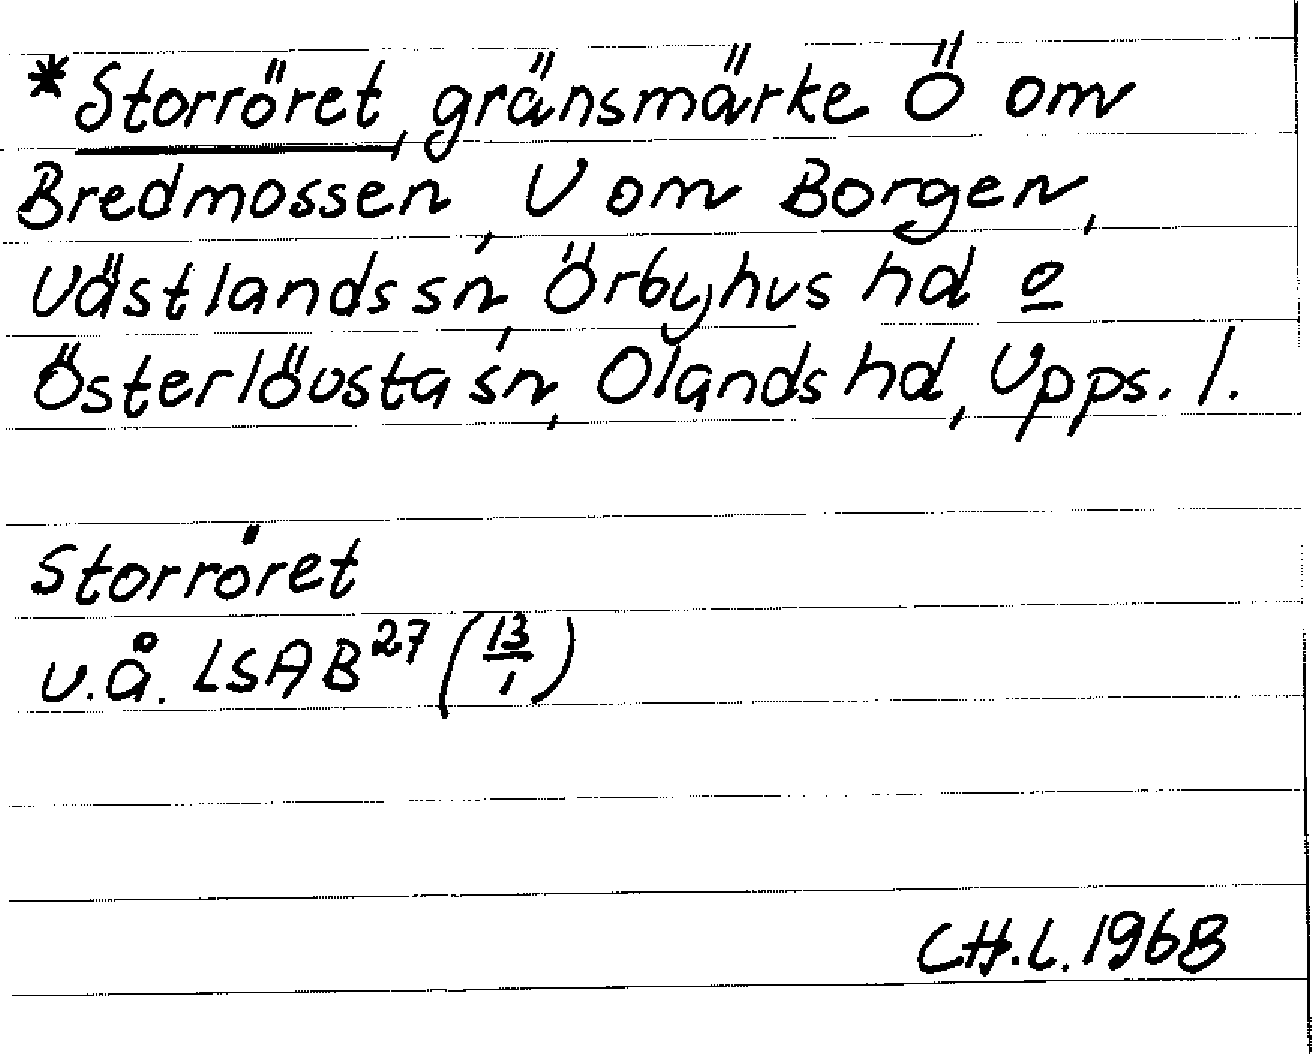 *Storröret, gränsmärke Ö om
Bredmossen, V om Borgen,
Västlands sn, Örbyhus hd o
Österlövsta sn, Olands hd, Upps. l.
Storröret
u.å. LSA B²⁷ (13/1)
CH.L. 1968